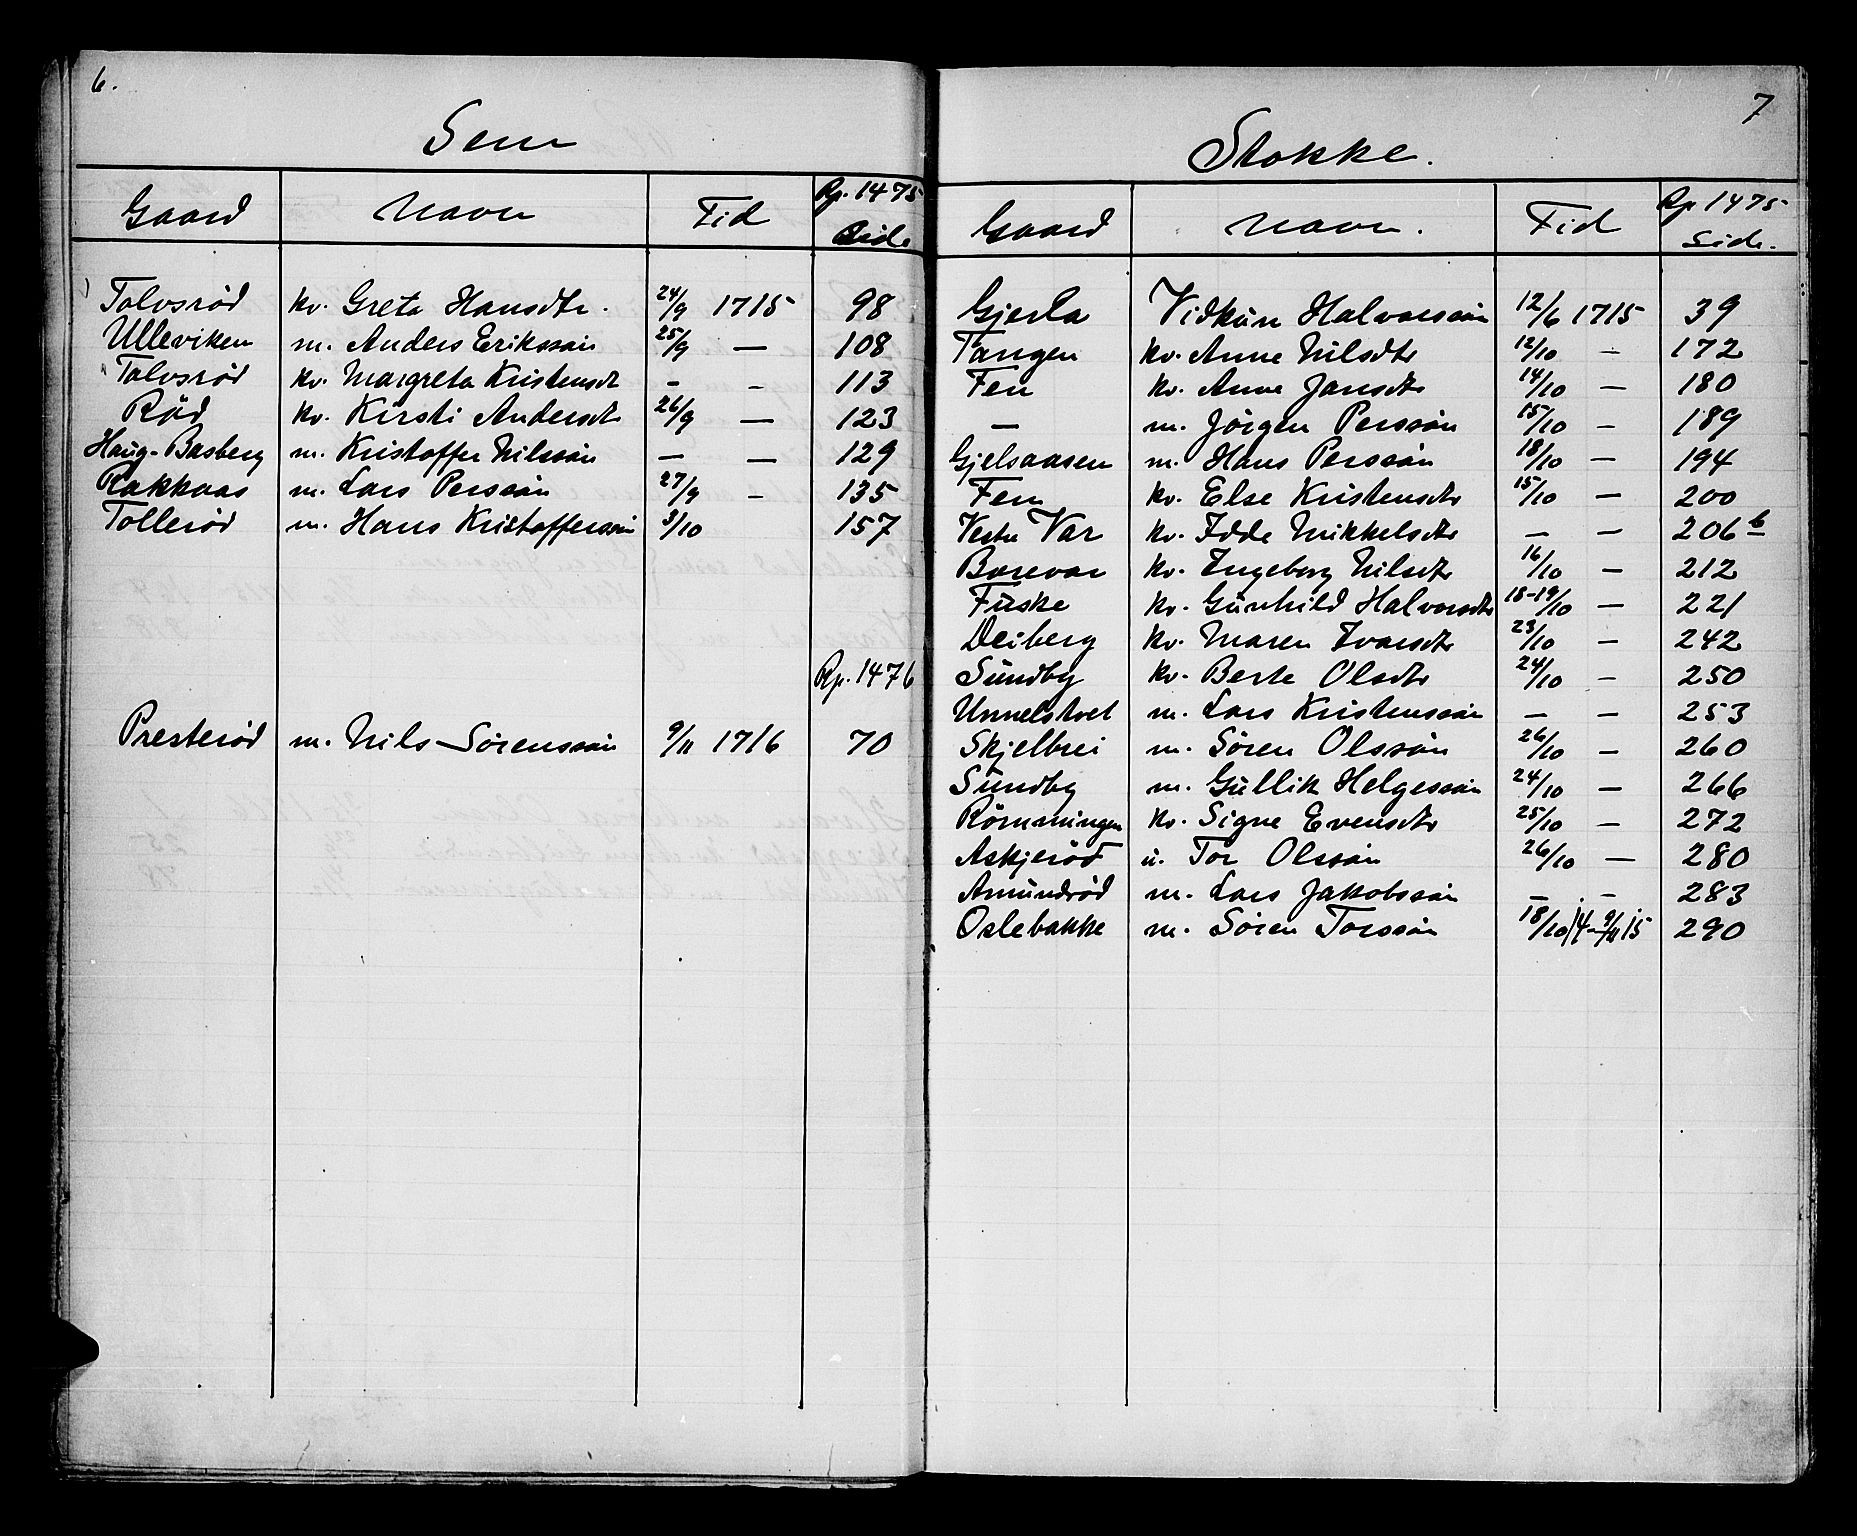 6.
Sem
Gaard Navn Tid Rp. 1475 Side
Tolvsrød kv. Greta Hansdtr. 24/9 1715 98
Ulleviken m. Anders Eriksson 25/9 — 108
Tolvsrød kv. Margreta Kristensdt - - 113
Rød kv. Kirsti Andersdtr 26/9 — 123
Haug-Basberg m. Kristoffer Nilsson — — 129
Rakkaas m. Lars Persson 27/9 - 135
Tollerød m. Hans Kristoffersson 3/10 157
Rp. 1476
Presterød m. Nils Sørensson 9/11 1716 70
7
Stokke.
Gaard Navn. Tid Rp 1475 Side.
Gjerla Vidkun Halvorsson 12/6 1715 39
Tangen kv. Anne Nilsdtr 12/10 — 172
Fen kv. Anne Jansdtr 14/10 — 180
— m. Jørgen Persson 15/10 — 189
Gjelsaasen m. Hans Persson 18/10 — 194
Fen kv. Else Kristensdtr 15/10 — 200
Vestre Vær kv. Idde Mikkelsdtr — — 206b
Borevar kv. Ingeborg Nilsdtr 16/10 — 212
Fuske kv. Gunhild Halvorsdtr 18-19/10 — 221
Deiberg kv. Maren Ivarsdtr 23/10 — 242
Sundby kv. Berte Olsdtr 24/10 — 250
Unnelstvet m. Lars Kristensson — — 253
Skjelbrei m. Søren Olsson 26/10 — 260
Sundby m. Gullik Helgesson 24/10 — 266
Rømmingen kv. Signe Evensdtr 25/10 — 272
Askjerød u. Tor Olsson 26/10 — 280
Amundrød m. Lars Jakobsson — - 283
Oslebakke m. Søren Torsson 18/10 14-9/11 15 290